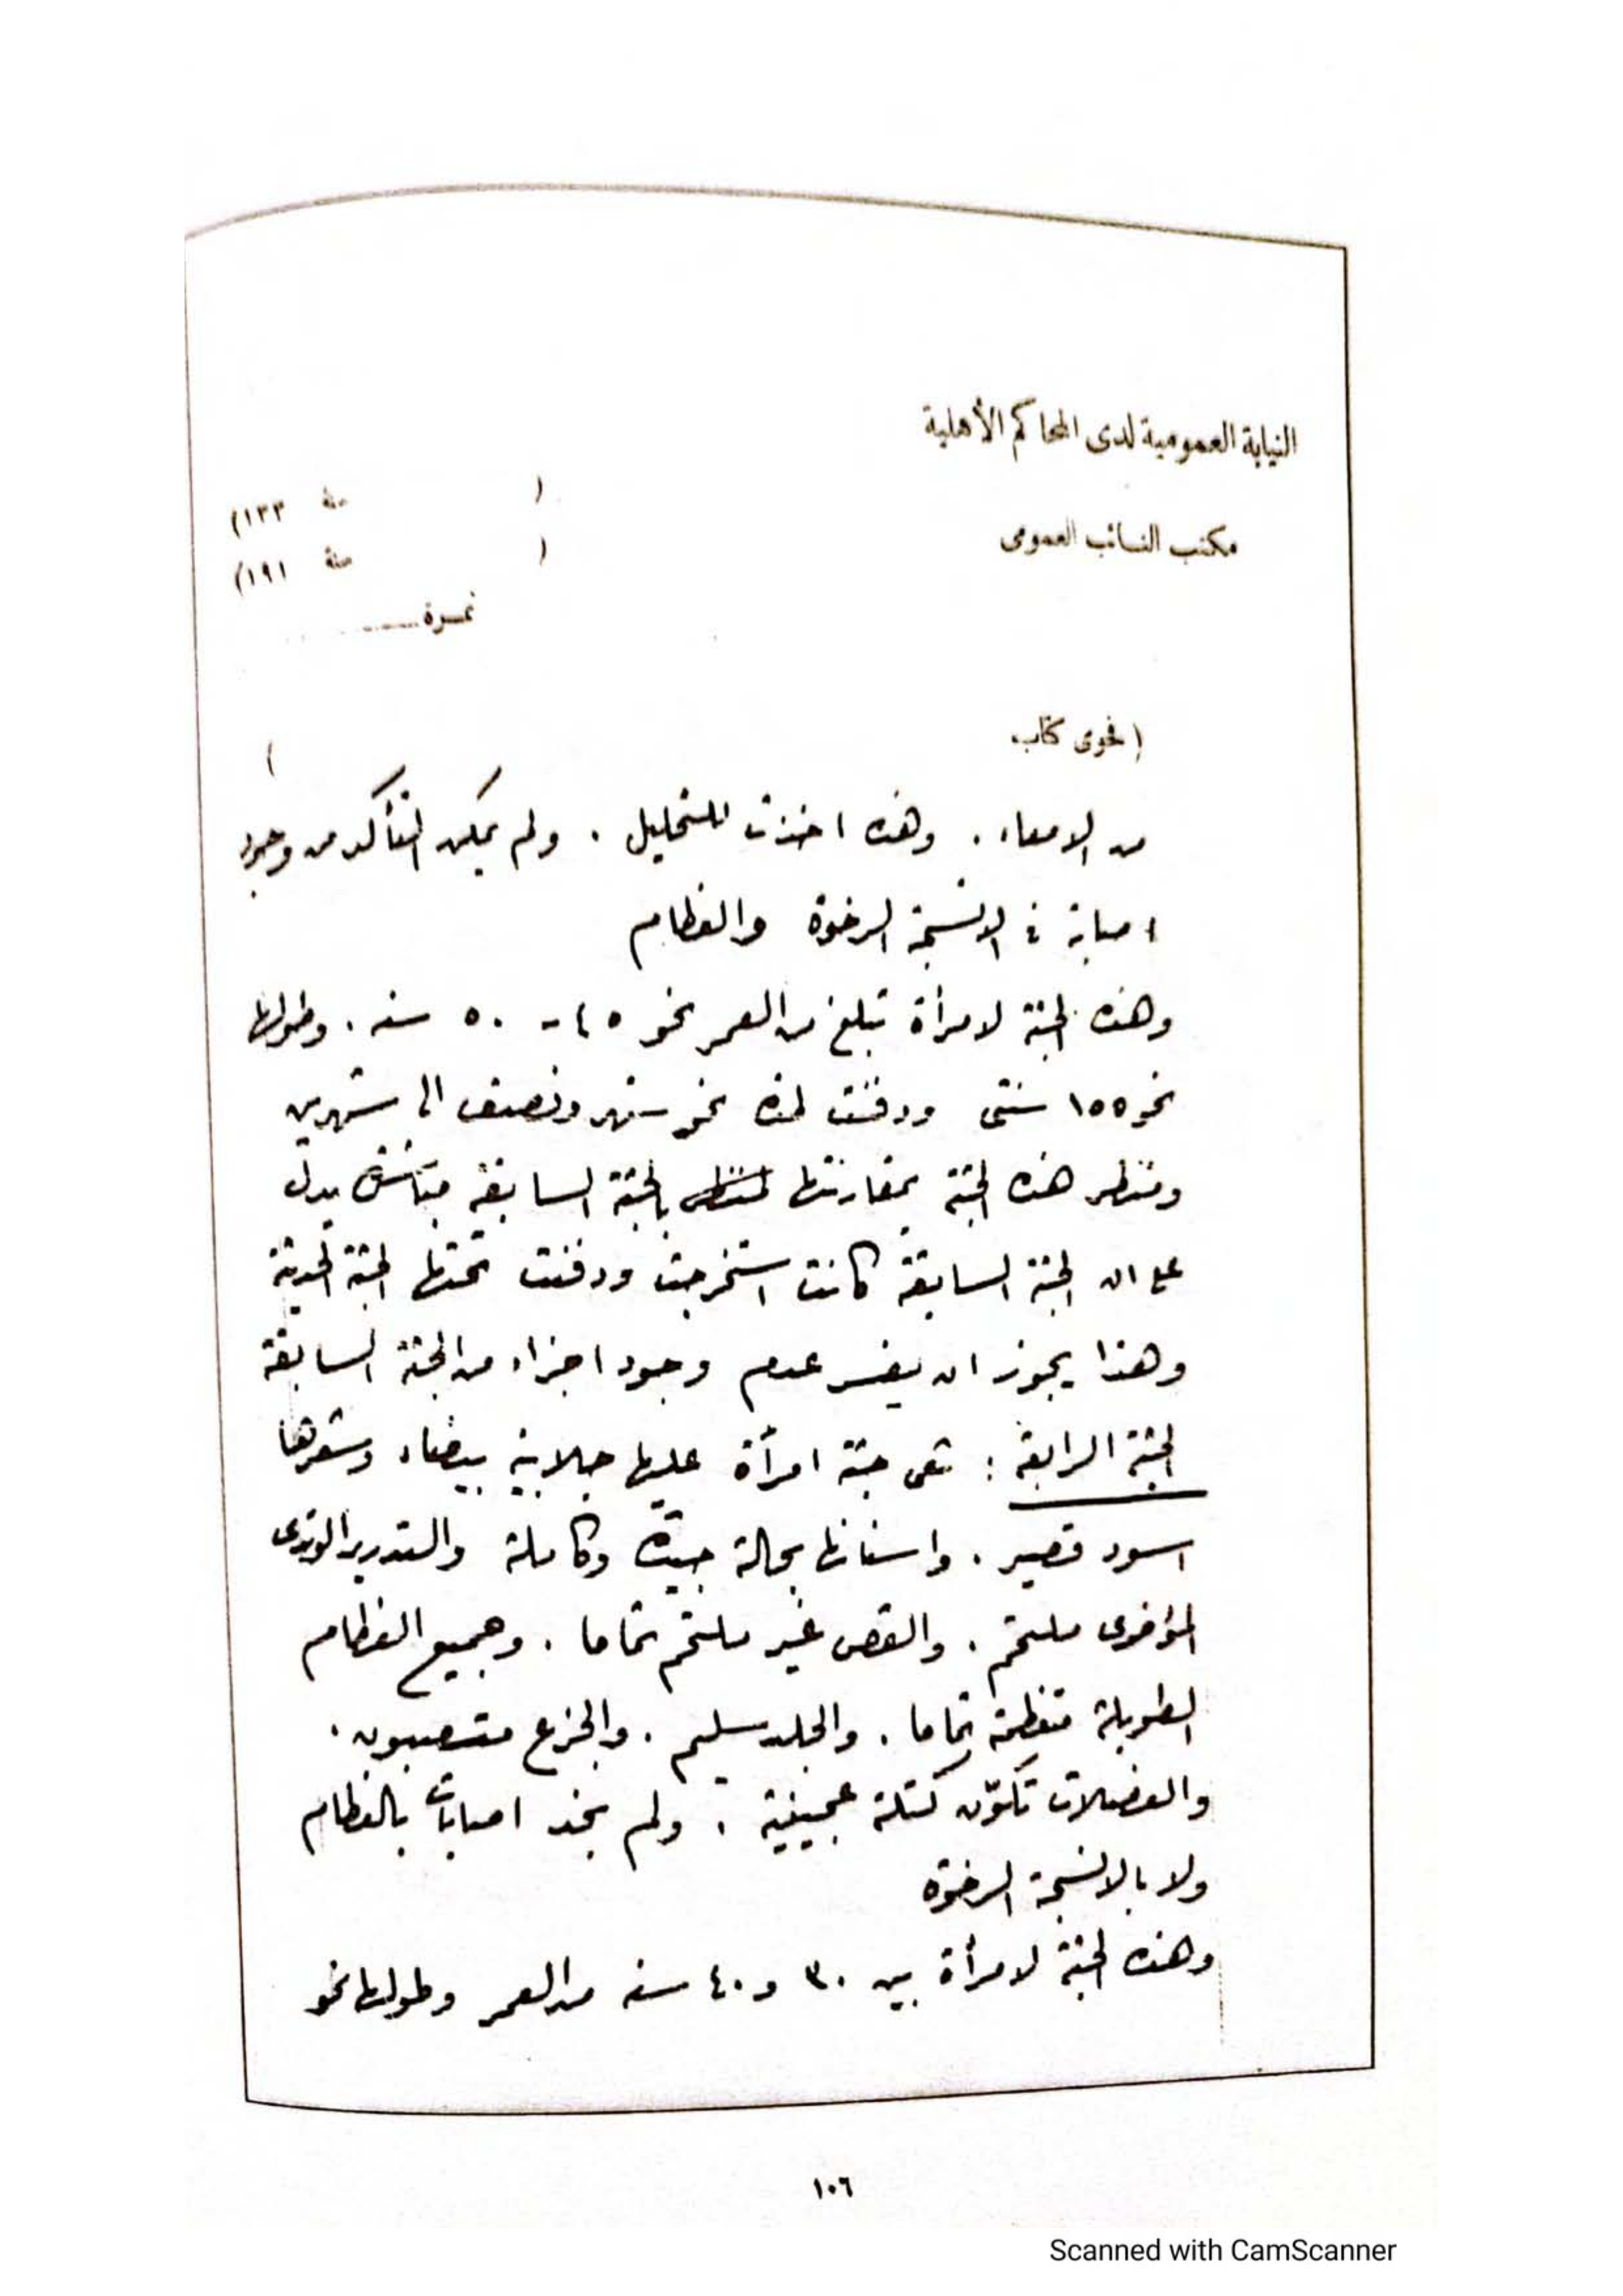 النيابة العمومية لدى المحاكم الأهلية
( سنة ١٣٣)
مكتب النائب العمومى
( سنة ١٩١)
نمرة
(فحوى كتاب )
من الامعاء . وهذه اخذت للتحليل . ولم يمكن التأكد من وجود
اصابة فى الانسجة الرخوة والعظام
وهذه الجثة لامرأة تبلغ من العمر نحو ٤٥ - ٥٠ سنه . وطولها
نحو ١٥٥ سنتى ودفنت لمدة نحو شهر ونصف الى شهرين
ومنظر هذه الجثة بمقارنتها بالجثة السابقة يدل
على ان الجثة السابقة كانت استخرجت ودفنت تحتها الجثة الحديثة
وهذا يجوز ان يفسر عدم وجود اجزاء من الجثة السابقة
الجثة الرابعة : هى جثة امرأة عليها جلابية بيضاء وشعرها
اسود قصير . واسنانها بحالة جيدة وكاملة والتدريز الوتدى
المؤخرى ملتحم . والقص غير ملتحم تماما . وجميع العظام
الطويلة متعظمة تماما . والجلد سليم . والجزع متصبون .
والعضلات تكوّن كتلة عجينية . ولم نجد اصابات بالعظام
ولا بالانسجة الرخوة
وهذه الجثة لامرأة بين ٣٠ و ٤٠ سنه من العمر وطولها نحو
١٠٦
Scanned with CamScanner